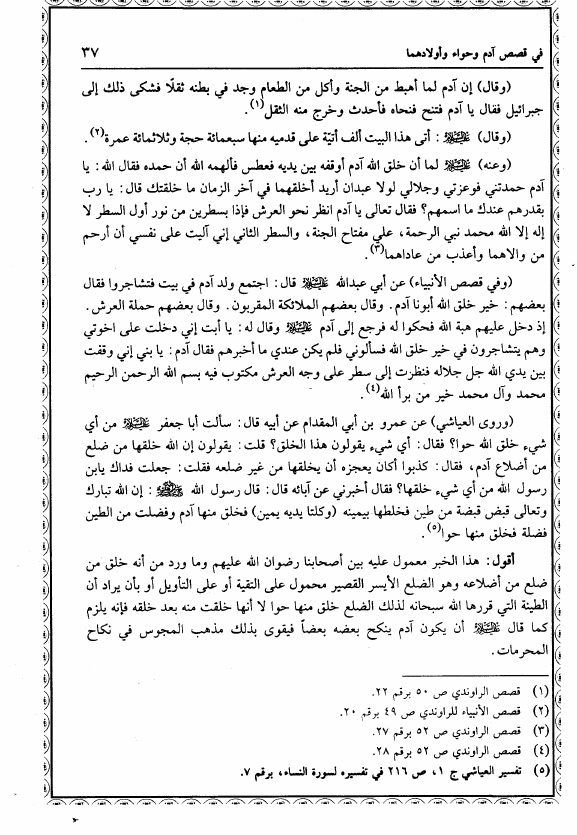 في قصص آدم وحواء وأولادهما ٣٧
(وقال) إن آدم لما أهبط من الجنة وأكل من الطعام وجد في بطنه ثقلًا فشكى ذلك إلى
جبرائيل فقال يا آدم فتنح فنحاه فأحدث وخرج منه الثقل(١).
(وقال) ﷺ : أتى هذا البيت ألف أتيّة على قدميه منها سبعمائة حجة وثلاثمائة عمرة(٢).
(وعنه) ﷺ لما أن خلق الله آدم أوقفه بين يديه فعطس فألهمه الله أن حمده فقال الله: يا
آدم حمدتني فوعزتي وجلالي لولا عبدان أريد أخلقهما في آخر الزمان ما خلقتك قال: يا رب
بقدرهم عندك ما اسمهم؟ فقال تعالى يا آدم انظر نحو العرش فإذا بسطرين من نور أول السطر لا
إله إلا الله محمد نبي الرحمة، علي مفتاح الجنة، والسطر الثاني إني آليت على نفسي أن أرحم
من والاهما وأعذب من عاداهما(٣).
(وفي قصص الأنبياء) عن أبي عبدالله قال: اجتمع ولد آدم في بيت فتشاجروا فقال
بعضهم: خير خلق الله أبونا آدم. وقال بعضهم الملائكة المقربون. وقال بعضهم حملة العرش.
إذ دخل عليهم هبة الله فحكوا له فرجع إلى آدم وقال له: يا أبت إني دخلت على اخوتي
وهم يتشاجرون في خير خلق الله فسألوني فلم يكن عندي ما أخبرهم فقال آدم: يا بني إني وقفت
بين يدي الله جل جلاله فنظرت إلى سطر على وجه العرش مكتوب فيه بسم الله الرحمن الرحيم
محمد وآل محمد خير من برأ الله(٤).
(وروى العياشي) عن عمرو بن أبي المقدام عن أبيه قال: سألت أبا جعفر من أي
شيء خلق الله حوا؟ فقال: أي شيء يقولون هذا الخلق؟ قلت: يقولون إن الله خلقها من ضلع
من أضلاع آدم، فقال: كذبوا أكان يعجزه أن يخلقها من غير ضلعه فقلت: جعلت فداك يابن
رسول الله من أي شيء خلقها؟ فقال أخبرني عن آبائه قال: قال رسول الله ﷺ : إن الله تبارك
وتعالى قبض قبضة من طين فخلطها بيمينه (وكلتا يديه يمين) فخلق منها آدم وفضلت من الطين
فضلة فخلق منها حوا(٥).
أقول: هذا الخبر معمول عليه بين أصحابنا رضوان الله عليهم وما ورد من أنه خلق من
ضلع من أضلاعه وهو الضلع الأيسر القصير محمول على التقية أو على التأويل أو بأن يراد أن
الطينة التي قررها الله سبحانه لذلك الضلع خلق منها حوا لا أنها خلقت منه بعد خلقه فإنه يلزم
كما قال أن يكون آدم ينكح بعضه بعضاً فيقوى بذلك مذهب المجوس في نكاح
المحرمات.
(١) قصص الراوندي ص ٥٠ برقم ٢٢.
(٢) قصص الأنبياء للراوندي ص ٤٩ برقم ٢٠.
(٣) قصص الراوندي ص ٥٢ برقم ٢٧.
(٤) قصص الراوندي ص ٥٢ برقم ٢٨.
(٥) تفسير العياشي ج ١، ص ٢١٦ في تفسيره لسورة النساء، برقم ٧.